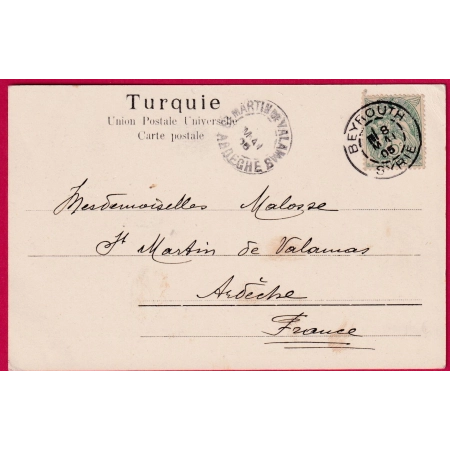 Turquie
Union Postale Universelle
Carte postale
ST MARTIN DE VALAMAS
MAI
05
ARDECHE
BEYROUTH
8
MAI
05
SYRIE
Mesdemoiselles Malosse
St Martin de Valamas
Ardèche
France